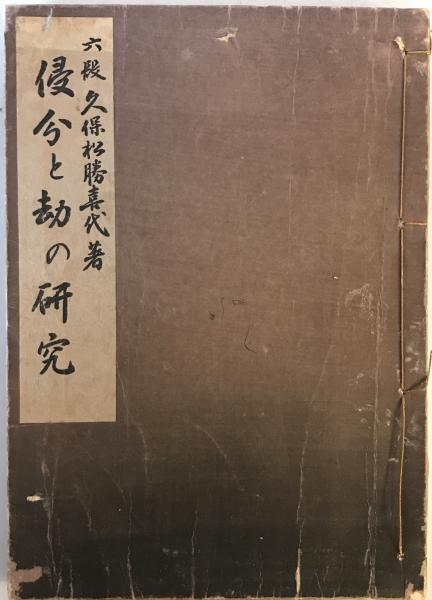 六段 久保松勝喜代著
侵分と劫の研究